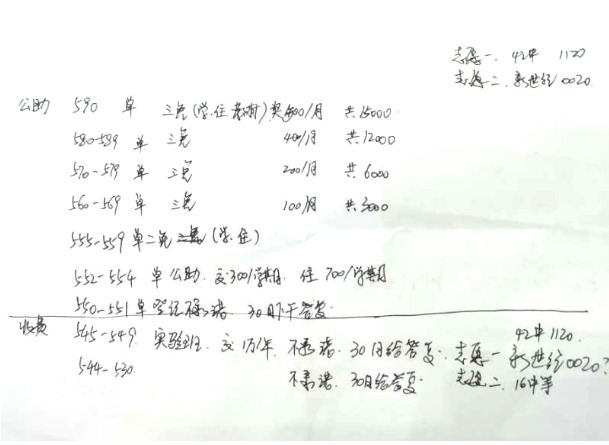 志愿一. 42中 1120
志愿二. 新世纪 0020.
公助 590 单 三免(学.住 教材) 奖500/月 共15000.
580-589 单 三免 400/月 共12000
570-579 单 三免 200/月 共6000
560-569 单 三免 100/月 共3000
555-559 单二免 (学.住)
552-554 单公助. 交300/学期. 住700/学期
550-551 单登记不承诺 30日下午答复
收费 545-549. 实验班. 交1万/年. 不承诺. 30日给答复. 志愿一 42中 1120.
新世纪 0020?
544-530. 不承诺. 30日给答复. 志愿二. 16中等